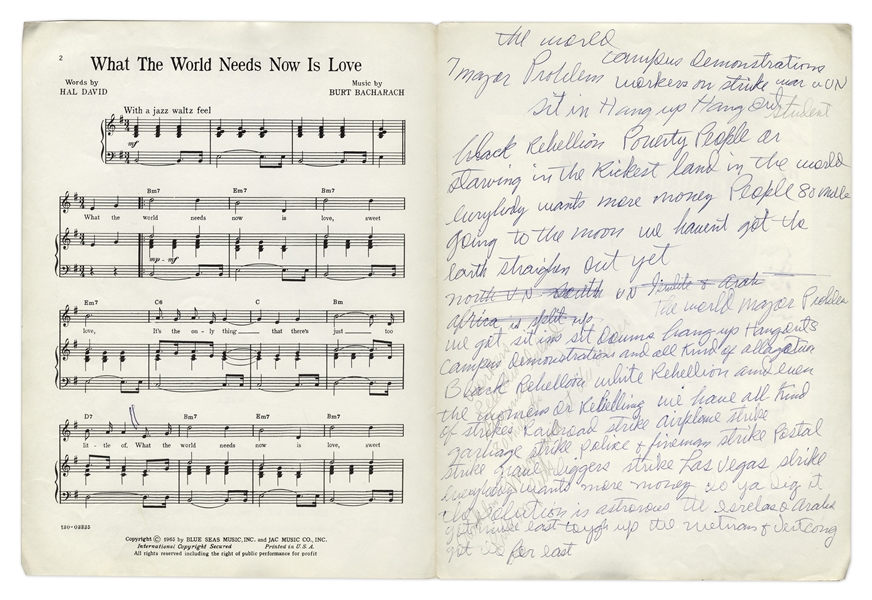 2
What The World Needs Now Is Love
Words by
HAL DAVID
Music by
BURT BACHARACH
With a jazz waltz feel
mf
Bm7 Em7 Bm7
What the world needs now is love, sweet
mp-mf
Em7 C6 C Bm
love, It's the on-ly thing that there's just too
D7 Bm7 Em7 Bm7
lit-tle of. What the world needs now is love, sweet
Copyright © 1965 by BLUE SEAS MUSIC, INC. and JAC MUSIC CO., INC.
International Copyright Secured Printed in U.S.A.
All rights reserved including the right of public performance for profit
the world
7 major Problem campus Demonstrations
workers on strike war VN
sit in Hang up Hang out student
black Rebellion Poverty People ar
starving in the Richest land in the world
everybody wants more money People 80
going to the moon we havent got the
earth straighen out yet
north VN South VN & Arab
Africa is split up. The world major Problem
we get sit ins sit downs hang up Hangouts
campus Demonstrations and all Kind of
Black Rebellion white Rebellion and even
the womens ar Rebelling we have all Kind
of strikes Railroad strike airplane strike
garbage strike Police & fireman strike Postal
strike grave Diggers strike Las Vegas strike
Everybody wants more money so ya Dig it
is & Arabs
east up the & Vietcong
far east